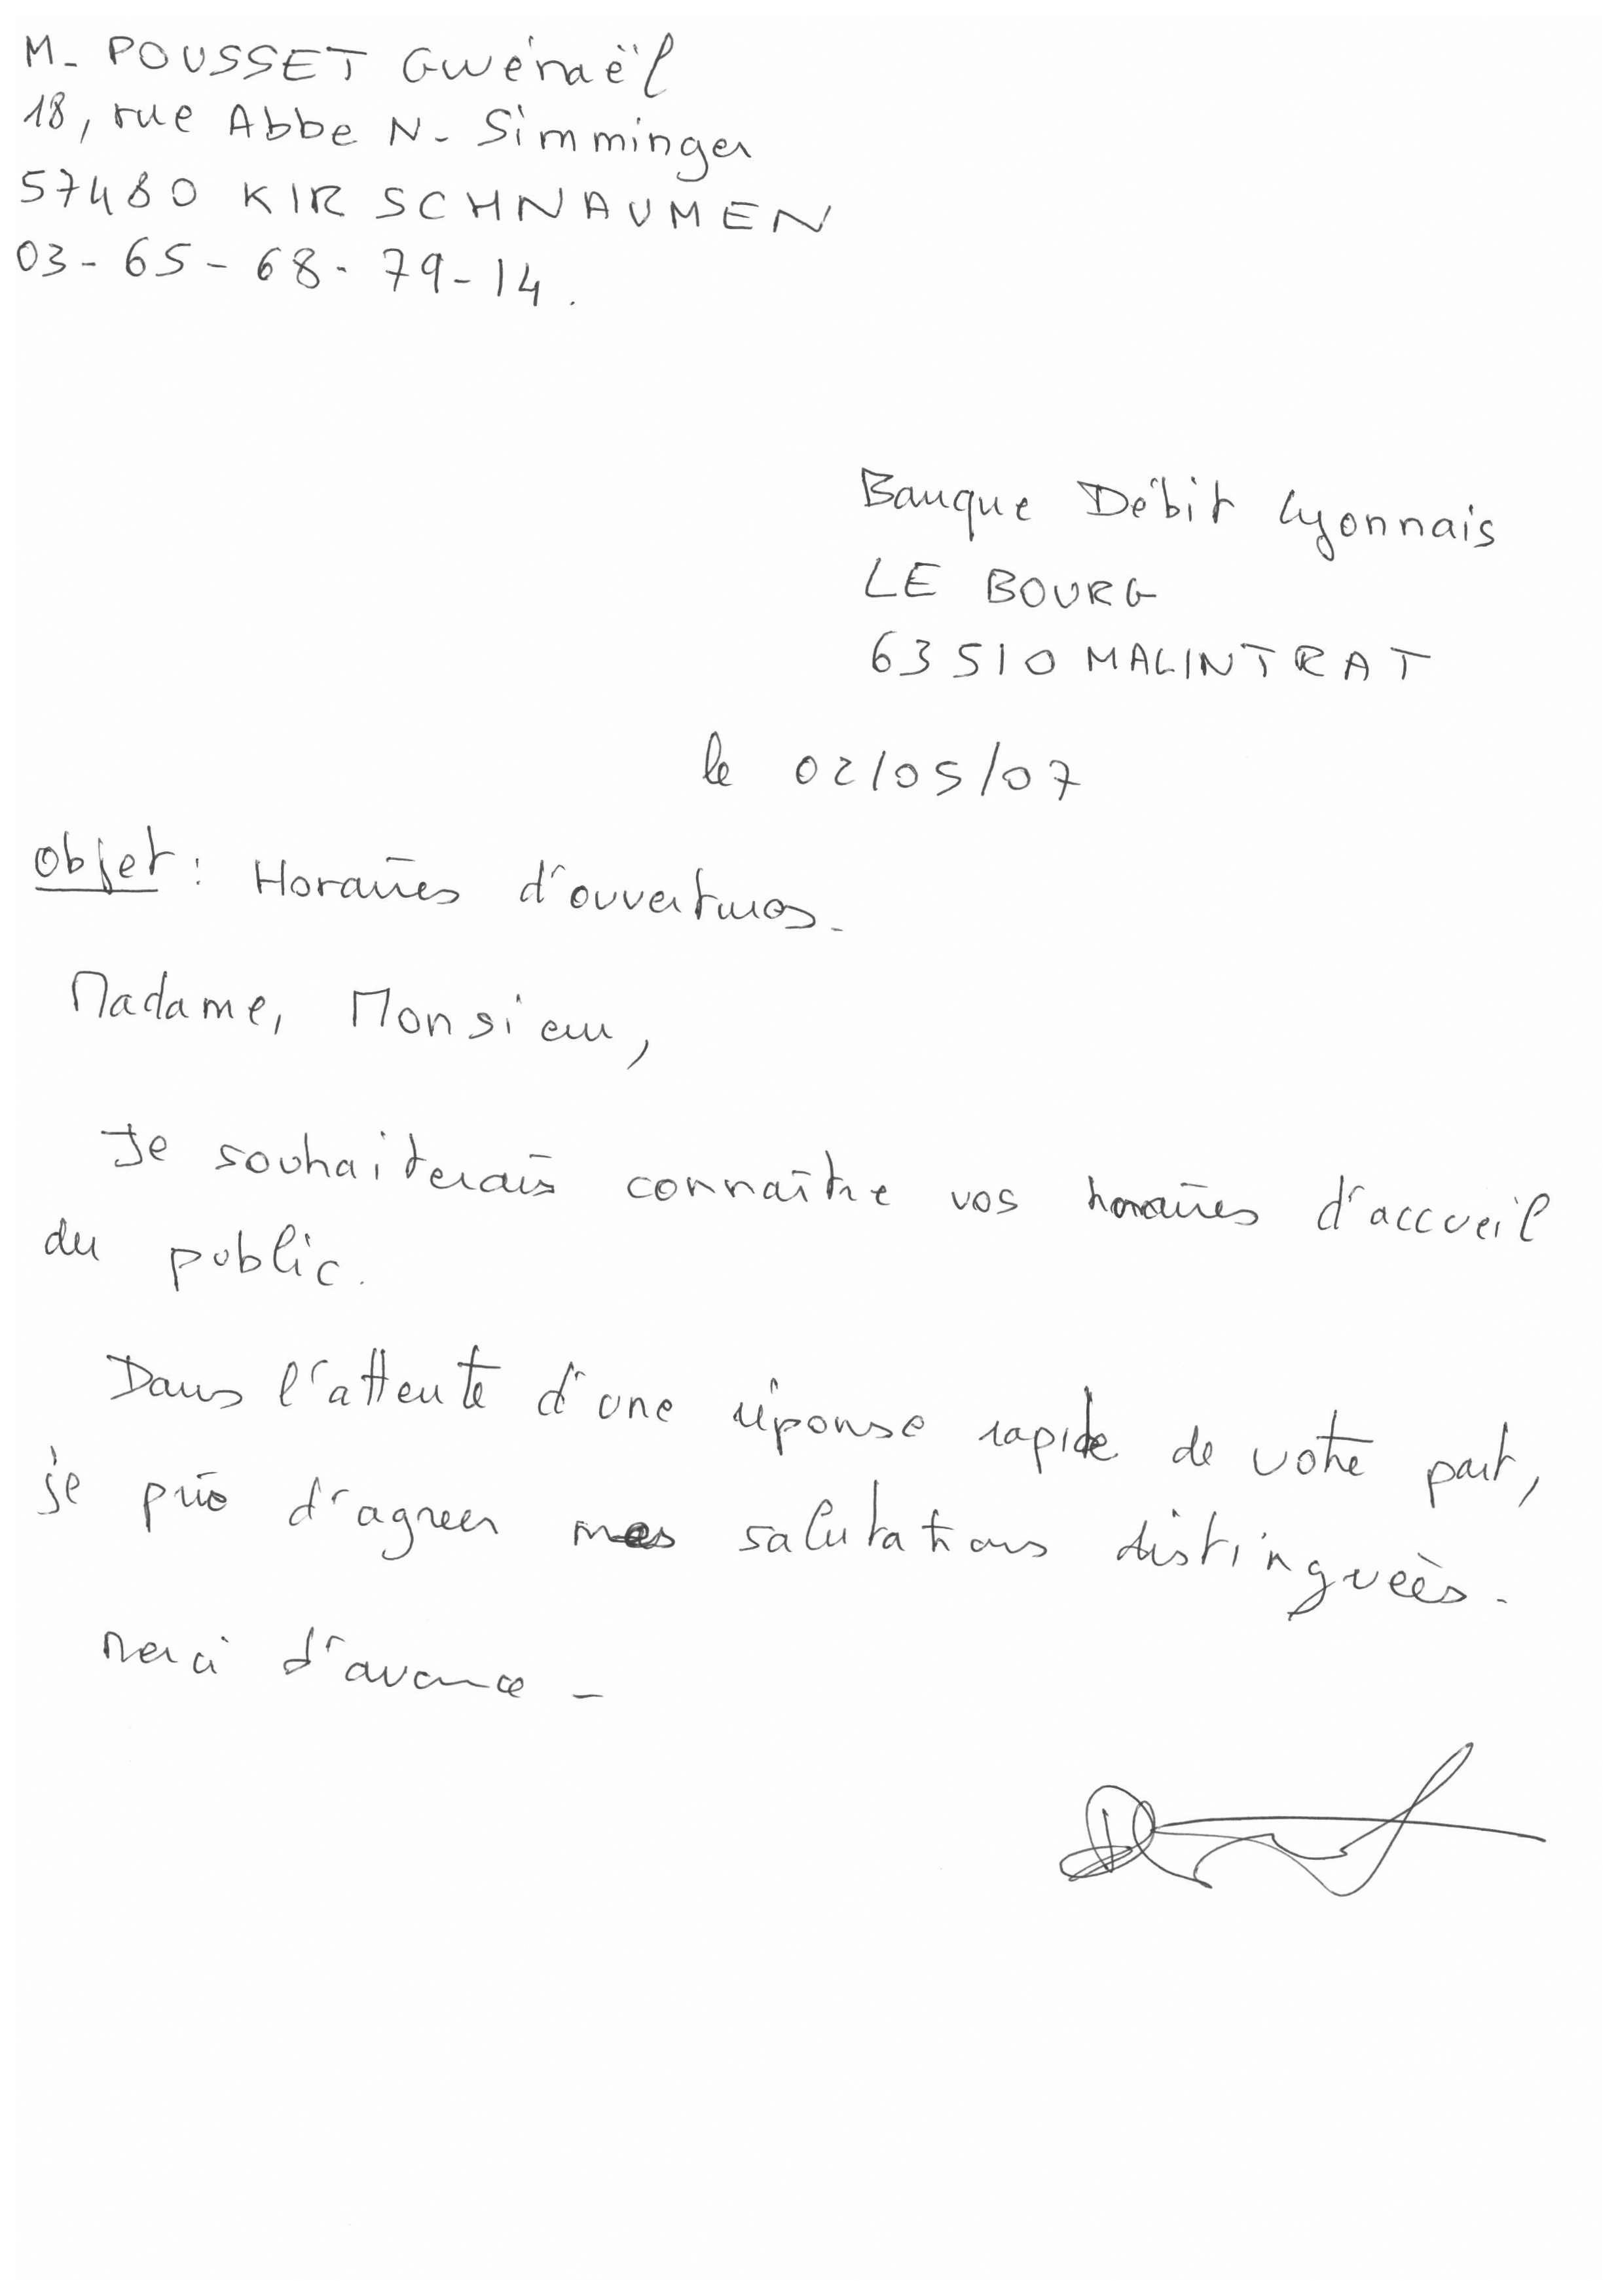 M. POUSSET Gwénaël
18, rue Abbe N. Simminger
57480 KIRSCHNAUMEN
03-65-68-79-14.
Banque Débit Lyonnais
LE BOURG
63510 MALINTRAT
le 02/05/07
Objet : Horaires d'ouvertures.
Madame, Monsieur,
Je souhaiterais connaître vos horaires d'accueil
du public.
Dans l'attente d'une réponse rapide de votre part,
je prie d'agreer mes salutations distinguées.
Merci d'avance.